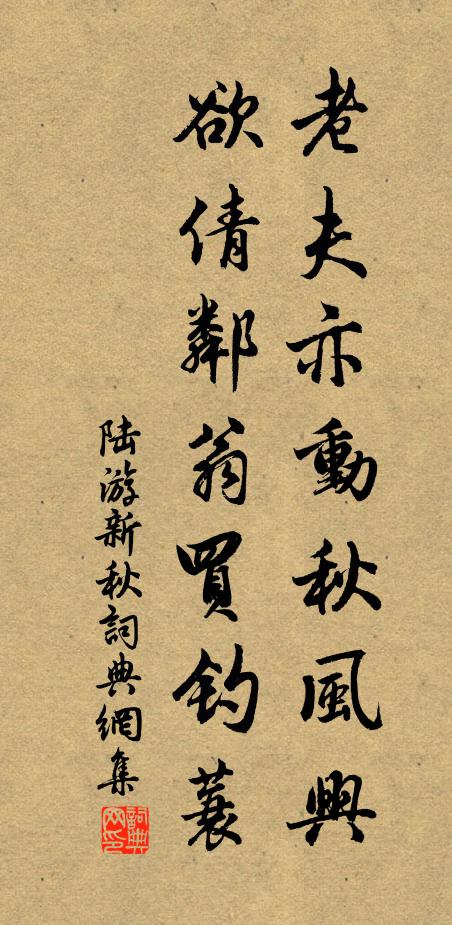 老夫亦動秋風興
欲倩鄰翁買釣蓑
陸游新秋詞典網集
詞典网印